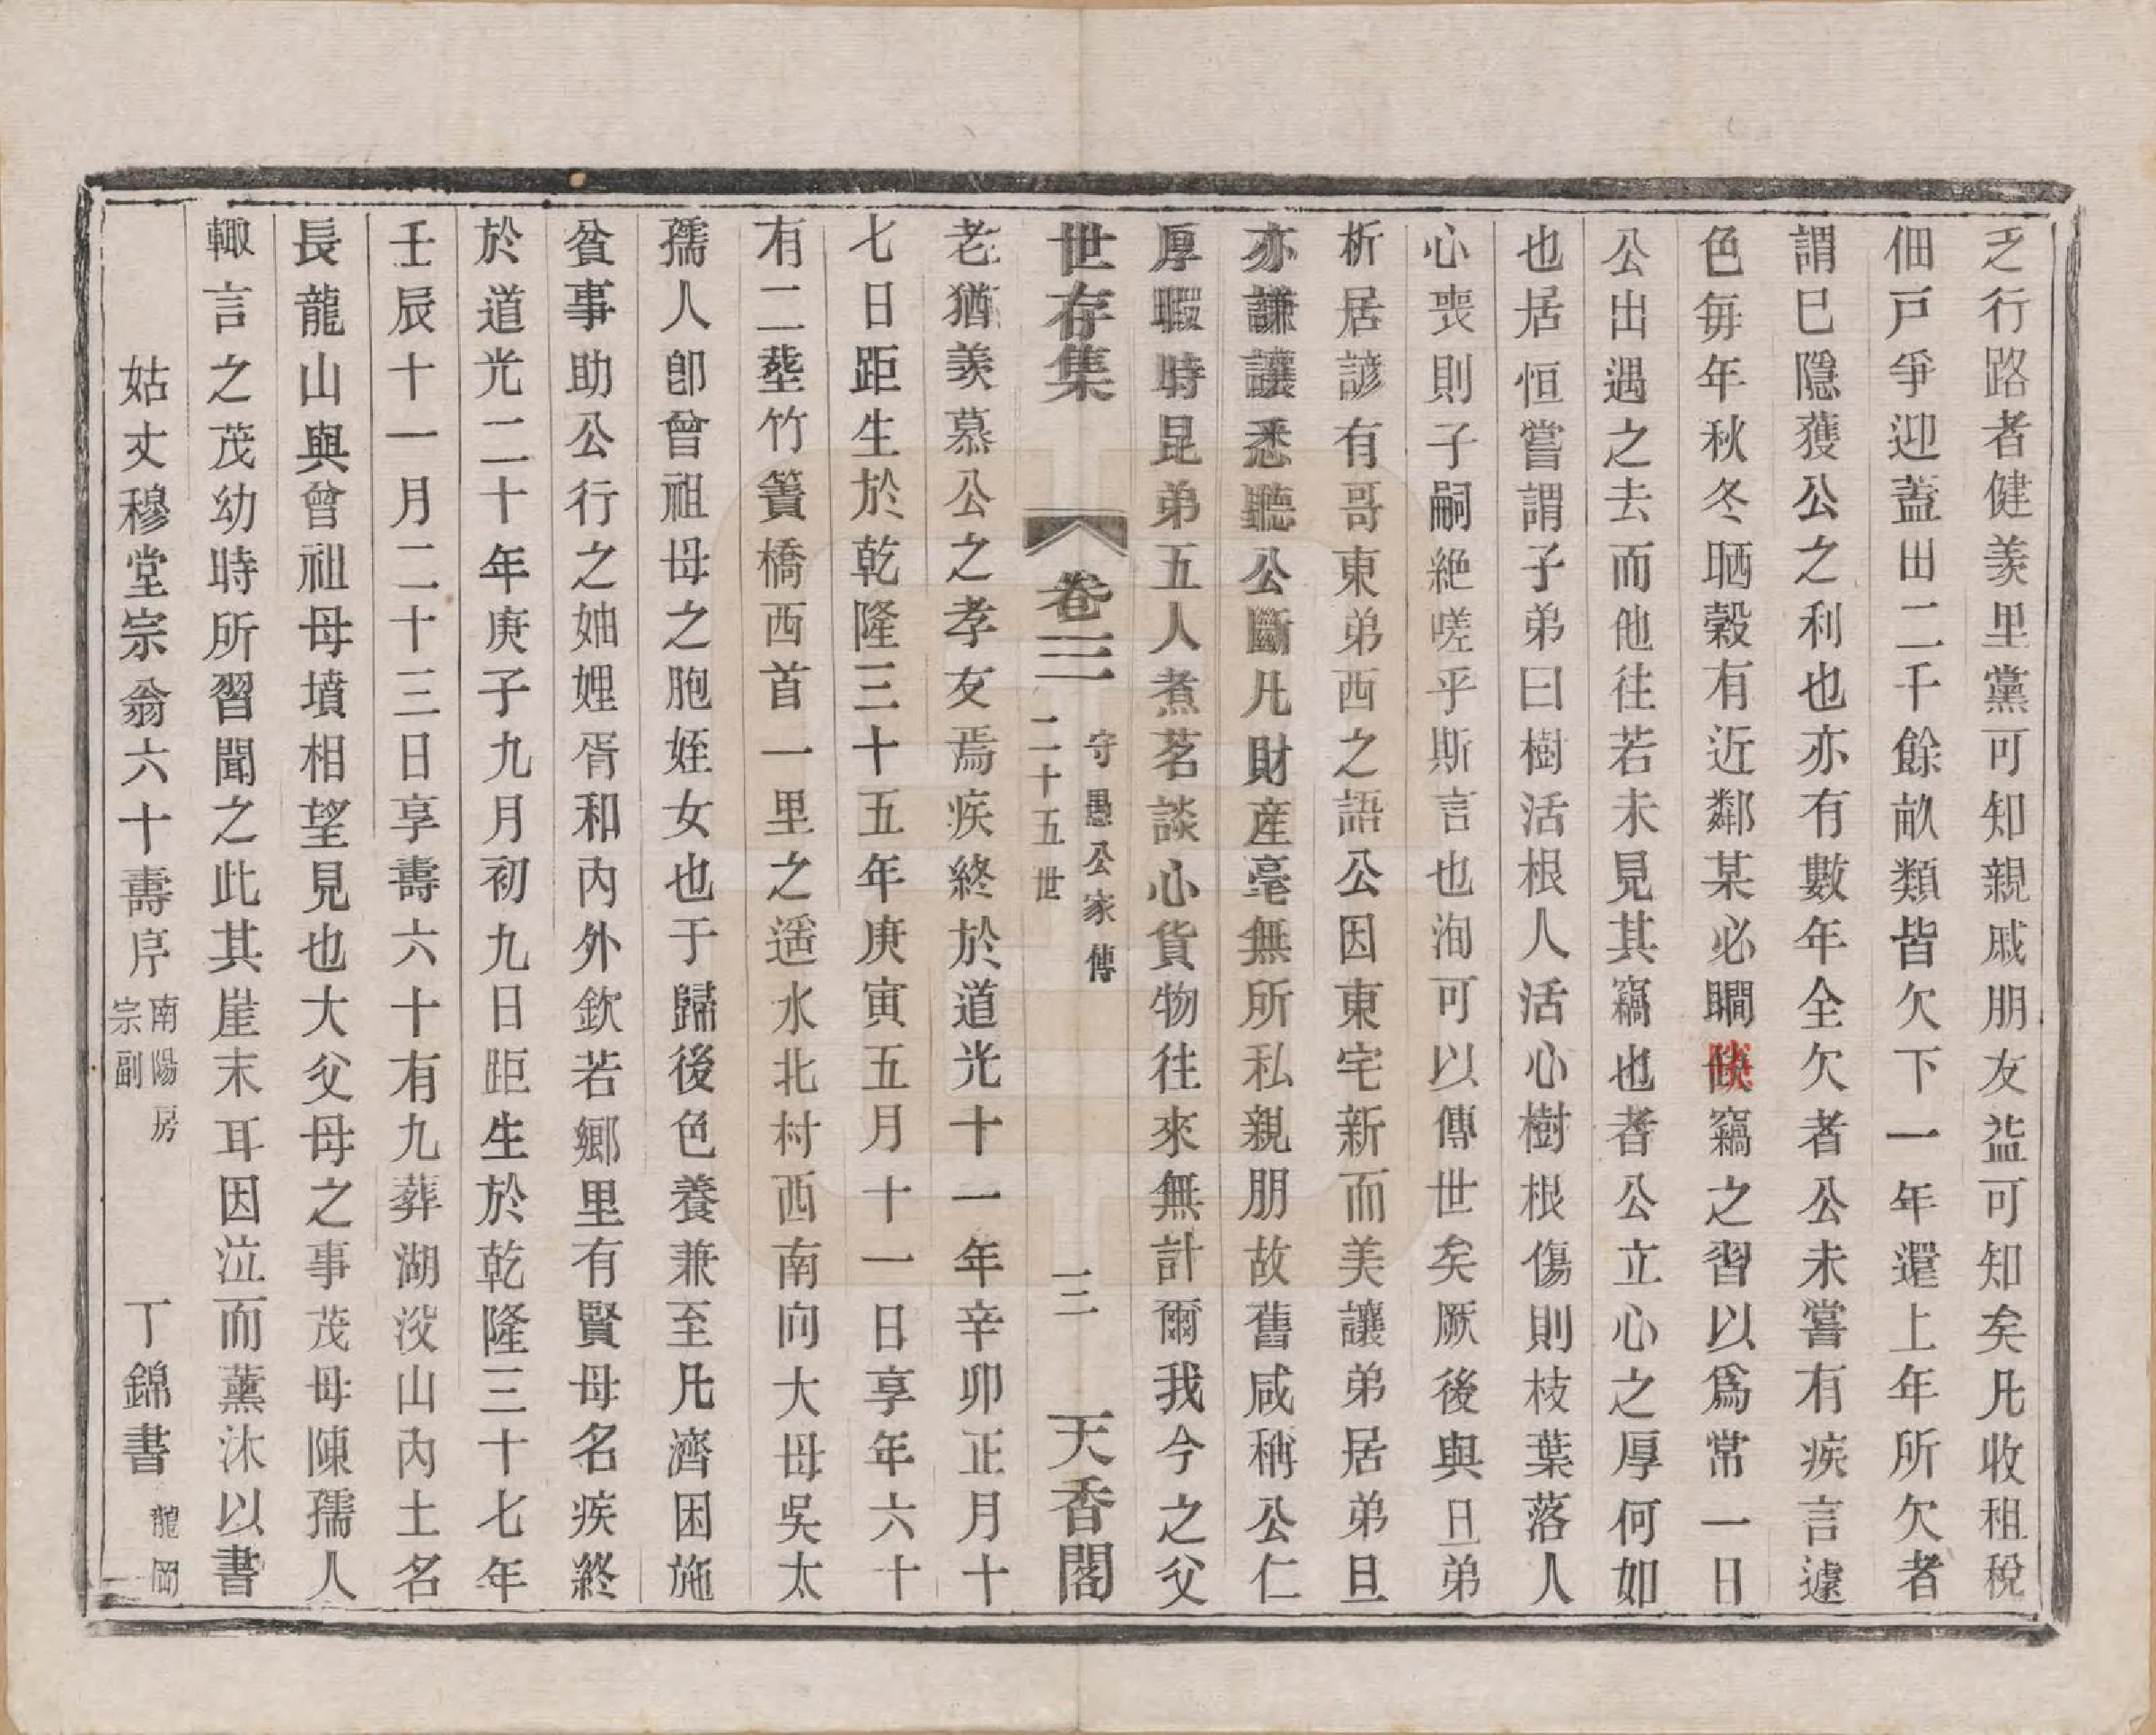 乏行路者健羨里黨可知親戚朋友益可知矣凡收租稅
佃戸爭迎蓋田二千餘畝類皆欠下一年還上年所欠者
謂巳隱獲公之利也亦有數年全欠者公未嘗有疾言遽
色毎年秋冬晒穀有近鄰某必瞷 竊之習以爲常一日
公出遇之去而他往若未見其竊也者公立心之厚何如
也居恒嘗謂子弟曰樹活根人活心樹根傷則枝葉落人
心喪則子嗣絶嗟乎斯言也洵可以傳世矣厥後與旦弟
析居諺有哥東弟西之語公因東宅新而美讓弟居弟旦
亦謙讓悉聽公斷凡財産毫無所私親朋故舊咸稱公仁
厚暇時昆弟五人煮茗談心貨物往來無計爾我今之父
世存集 卷三 守愚公家傳 二十五世 三 天香閣
老猶羨慕公之孝友焉疾終於道光十一年辛卯正月十
七日距生於乾隆三十五年庚寅五月十一日享年六十
有二塟竹簀橋西首一里之遥水北村西南向大母吳太
孺人卽曾祖母之胞姪女也于歸後色養兼至凡濟困施
貧事助公行之妯娌胥和内外欽若鄉里有賢母名疾終
於道光二十年庚子九月初九日距生於乾隆三十七年
壬辰十一月二十三日享壽六十有九葬湖没山内土名
長龍山與曾祖母墳相望見也大父母之事茂母陳孺人
輙言之茂幼時所習聞之此其崖末耳因泣而薰沐以書
姑丈穆堂宗翁六十壽序 南陽房宗副 丁錦書 龍岡